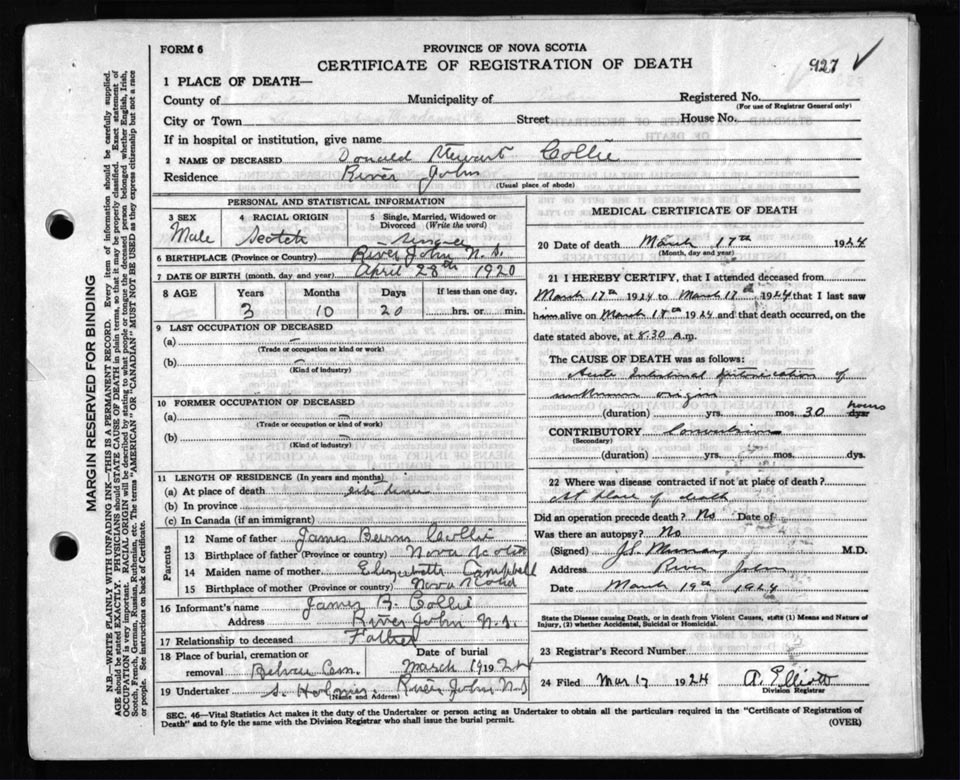 FORM 6
PROVINCE OF NOVA SCOTIA
CERTIFICATE OF REGISTRATION OF DEATH
927 ✓
1 PLACE OF DEATH—
County of
Municipality of
Registered No.
(For use of Registrar General only)
City or Town
Street
House No.
If in hospital or institution, give name
2 NAME OF DECEASED Donald Stewart Collie
Residence River John
(Usual place of abode)
PERSONAL AND STATISTICAL INFORMATION
3 SEX Male
4 RACIAL ORIGIN Scotch
5 Single, Married, Widowed or Divorced (Write the word) Single
6 BIRTHPLACE (Province or Country) River John N.S.
7 DATE OF BIRTH (month, day and year) April 28th 1920
8 AGE Years 3 Months 10 Days 20 If less than one day, hrs. or min.
9 LAST OCCUPATION OF DECEASED
(a) —
(Trade or occupation or kind or work)
(b) —
(Kind of industry)
10 FORMER OCCUPATION OF DECEASED
(a) —
(Trade or occupation or kind or work)
(b) —
(Kind of industry)
11 LENGTH OF RESIDENCE (In years and months)
(a) At place of death
(b) In province
(c) In Canada (if an immigrant)
Parents
12 Name of father James Collie
13 Birthplace of father (Province or country) Nova Scotia
14 Maiden name of mother Elizabeth Campbell
15 Birthplace of mother (Province or country) Nova Scotia
16 Informant's name James B. Collie
Address River John N.S.
17 Relationship to deceased Father
18 Place of burial, cremation or removal Cem.
Date of burial March 19 1924
19 Undertaker River John N.S
(Name and Address)
MEDICAL CERTIFICATE OF DEATH
20 Date of death March 17th 1924
(Month, day and year)
21 I HEREBY CERTIFY, that I attended deceased from
March 17th 1924 to March 17th 1924 that I last saw
him alive on March 1924 and that death occurred, on the
date stated above, at 8.30 A.m.
The CAUSE OF DEATH was as follows:
Acute Intestinal intoxication of
unknown origin
(duration) yrs. mos. 30 dys. hours
CONTRIBUTORY Convulsions
(Secondary)
(duration) yrs. mos. dys.
22 Where was disease contracted if not at place of death?
At place of death
Did an operation precede death? No Date of
Was there an autopsy? No
(Signed) M.D.
Address River John
Date March 19th 1924
State the Disease causing Death, or in death from Violent Causes, state (1) Means and Nature of Injury, (2) whether Accidental, Suicidal or Homicidal.
23 Registrar's Record Number
24 Filed Mar 17 1924 A. Elliott
Division Registrar
SEC. 46—Vital Statistics Act makes it the duty of the Undertaker or person acting as Undertaker to obtain all the particulars required in the "Certificate of Registration of
Death" and to fyle the same with the Division Registrar who shall issue the burial permit.
(OVER)
MARGIN RESERVED FOR BINDING
N.B.—WRITE PLAINLY WITH UNFADING INK—THIS IS A PERMANENT RECORD. Every item of information should be carefully supplied.
AGE should be stated EXACTLY. PHYSICIANS should STATE CAUSE OF DEATH in plain terms, so that it may be properly classified. Exact statement of
OCCUPATION is very important. RACIAL ORIGIN will be described by stating to what people or tongue the deceased person belonged whether English, Irish,
Scotch, French, German, Russian, Ruthenian, etc. The terms "AMERICAN" OR "CANADIAN" MUST NOT BE USED as they express citizenship but not a race
or people. See instructions on back of Certificate.